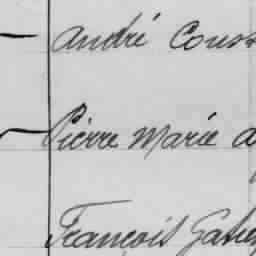 André Couss
Pierre Marie a
François Gabri